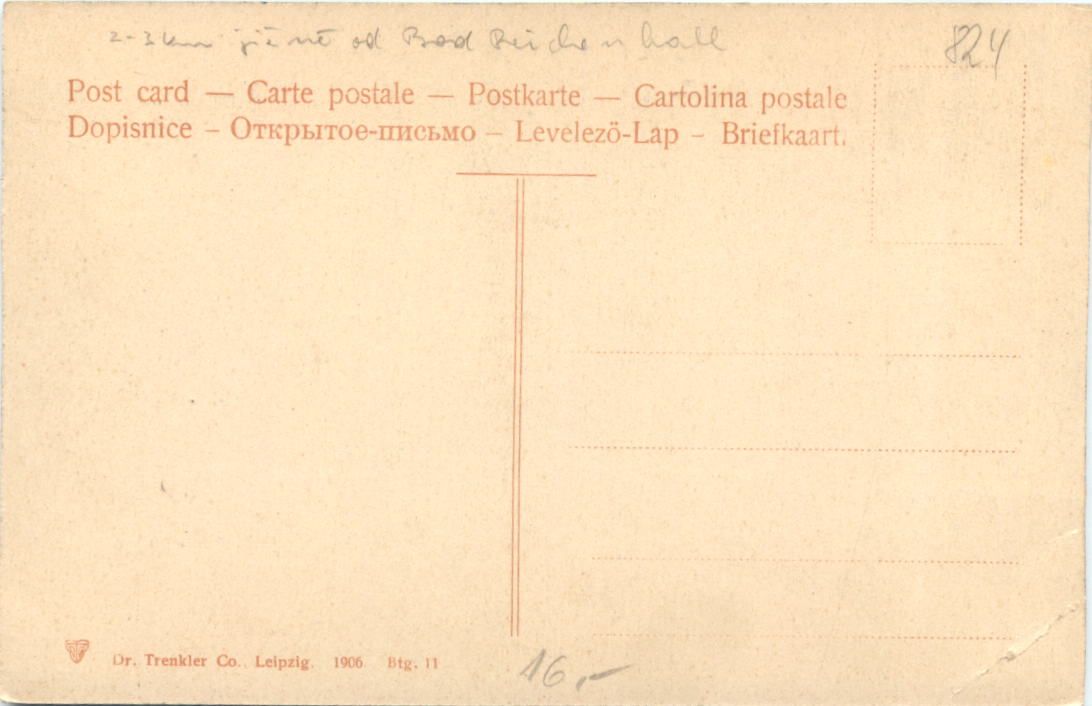 2-3 km jižně od Bad Reichenhall
824
Post card — Carte postale — Postkarte — Cartolina postale
Dopisnice – Открытое-письмо – Levelezö-Lap – Briefkaart.
Dr. Trenkler Co., Leipzig. 1906 Btg. 11
16,-